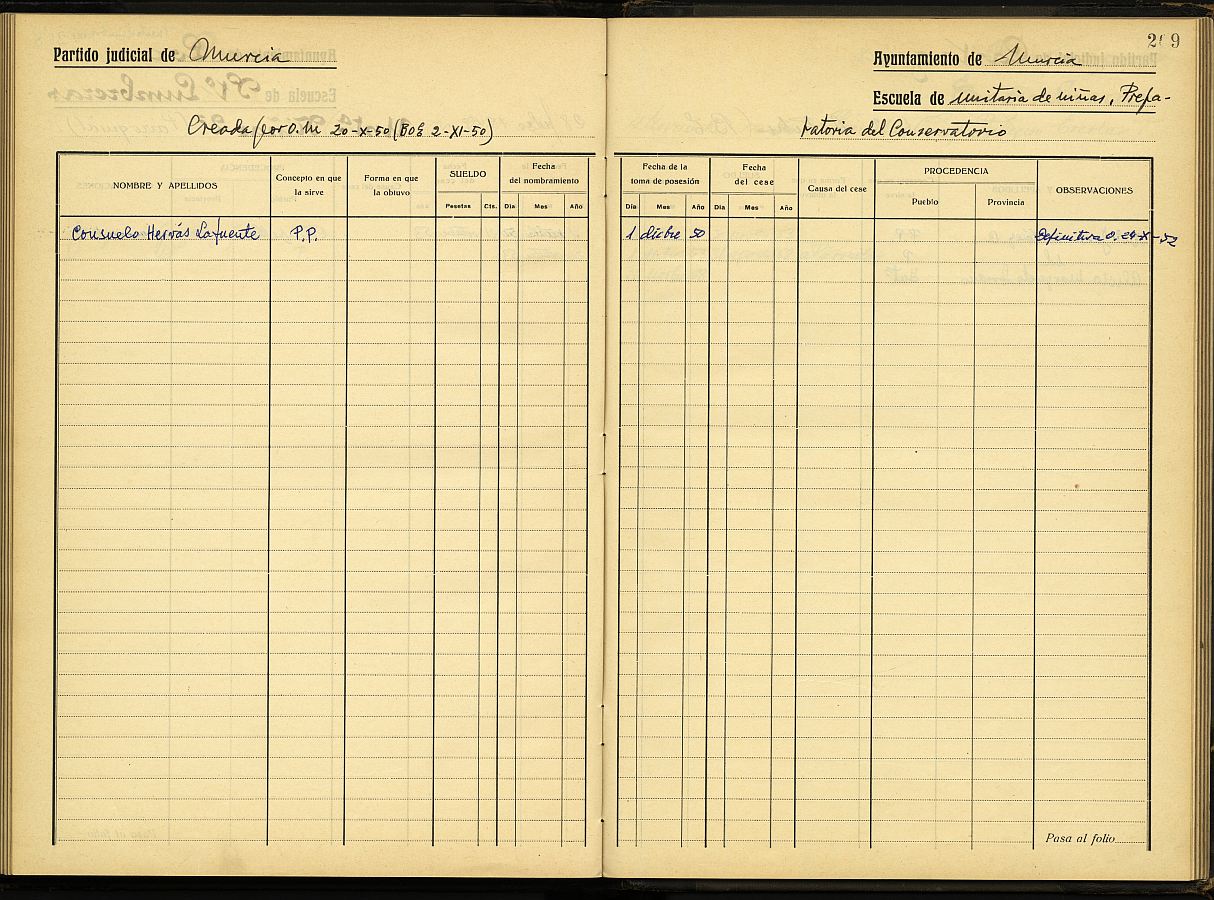 Partido judicial de Murcia
Creada por O. M 20-X-50 (BOE 2-XI-50)
NOMBRE Y APELLIDOS
Concepto en que la sirve
Forma en que la obtuvo
SUELDO
Pesetas Cts.
Fecha del nombramiento
Día Mes Año
Consuelo Hervás Lafuente P.P.
209
Ayuntamiento de Murcia
Escuela de Unitaria de niñas, Prepa-
ratoria del Conservatorio
Fecha de la toma de posesión
Día Mes Año
Fecha del cese
Día Mes Año
Causa del cese
PROCEDENCIA
Pueblo Provincia
OBSERVACIONES
1 dicbre 50 Definitiva O. 24-X-52
Pasa al folio